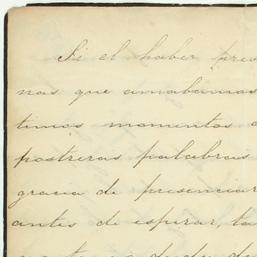 Si el haber pres
nas que amabamos
timos momentos
postreras palabras
gracia de presenciar
antes de espirar, ta